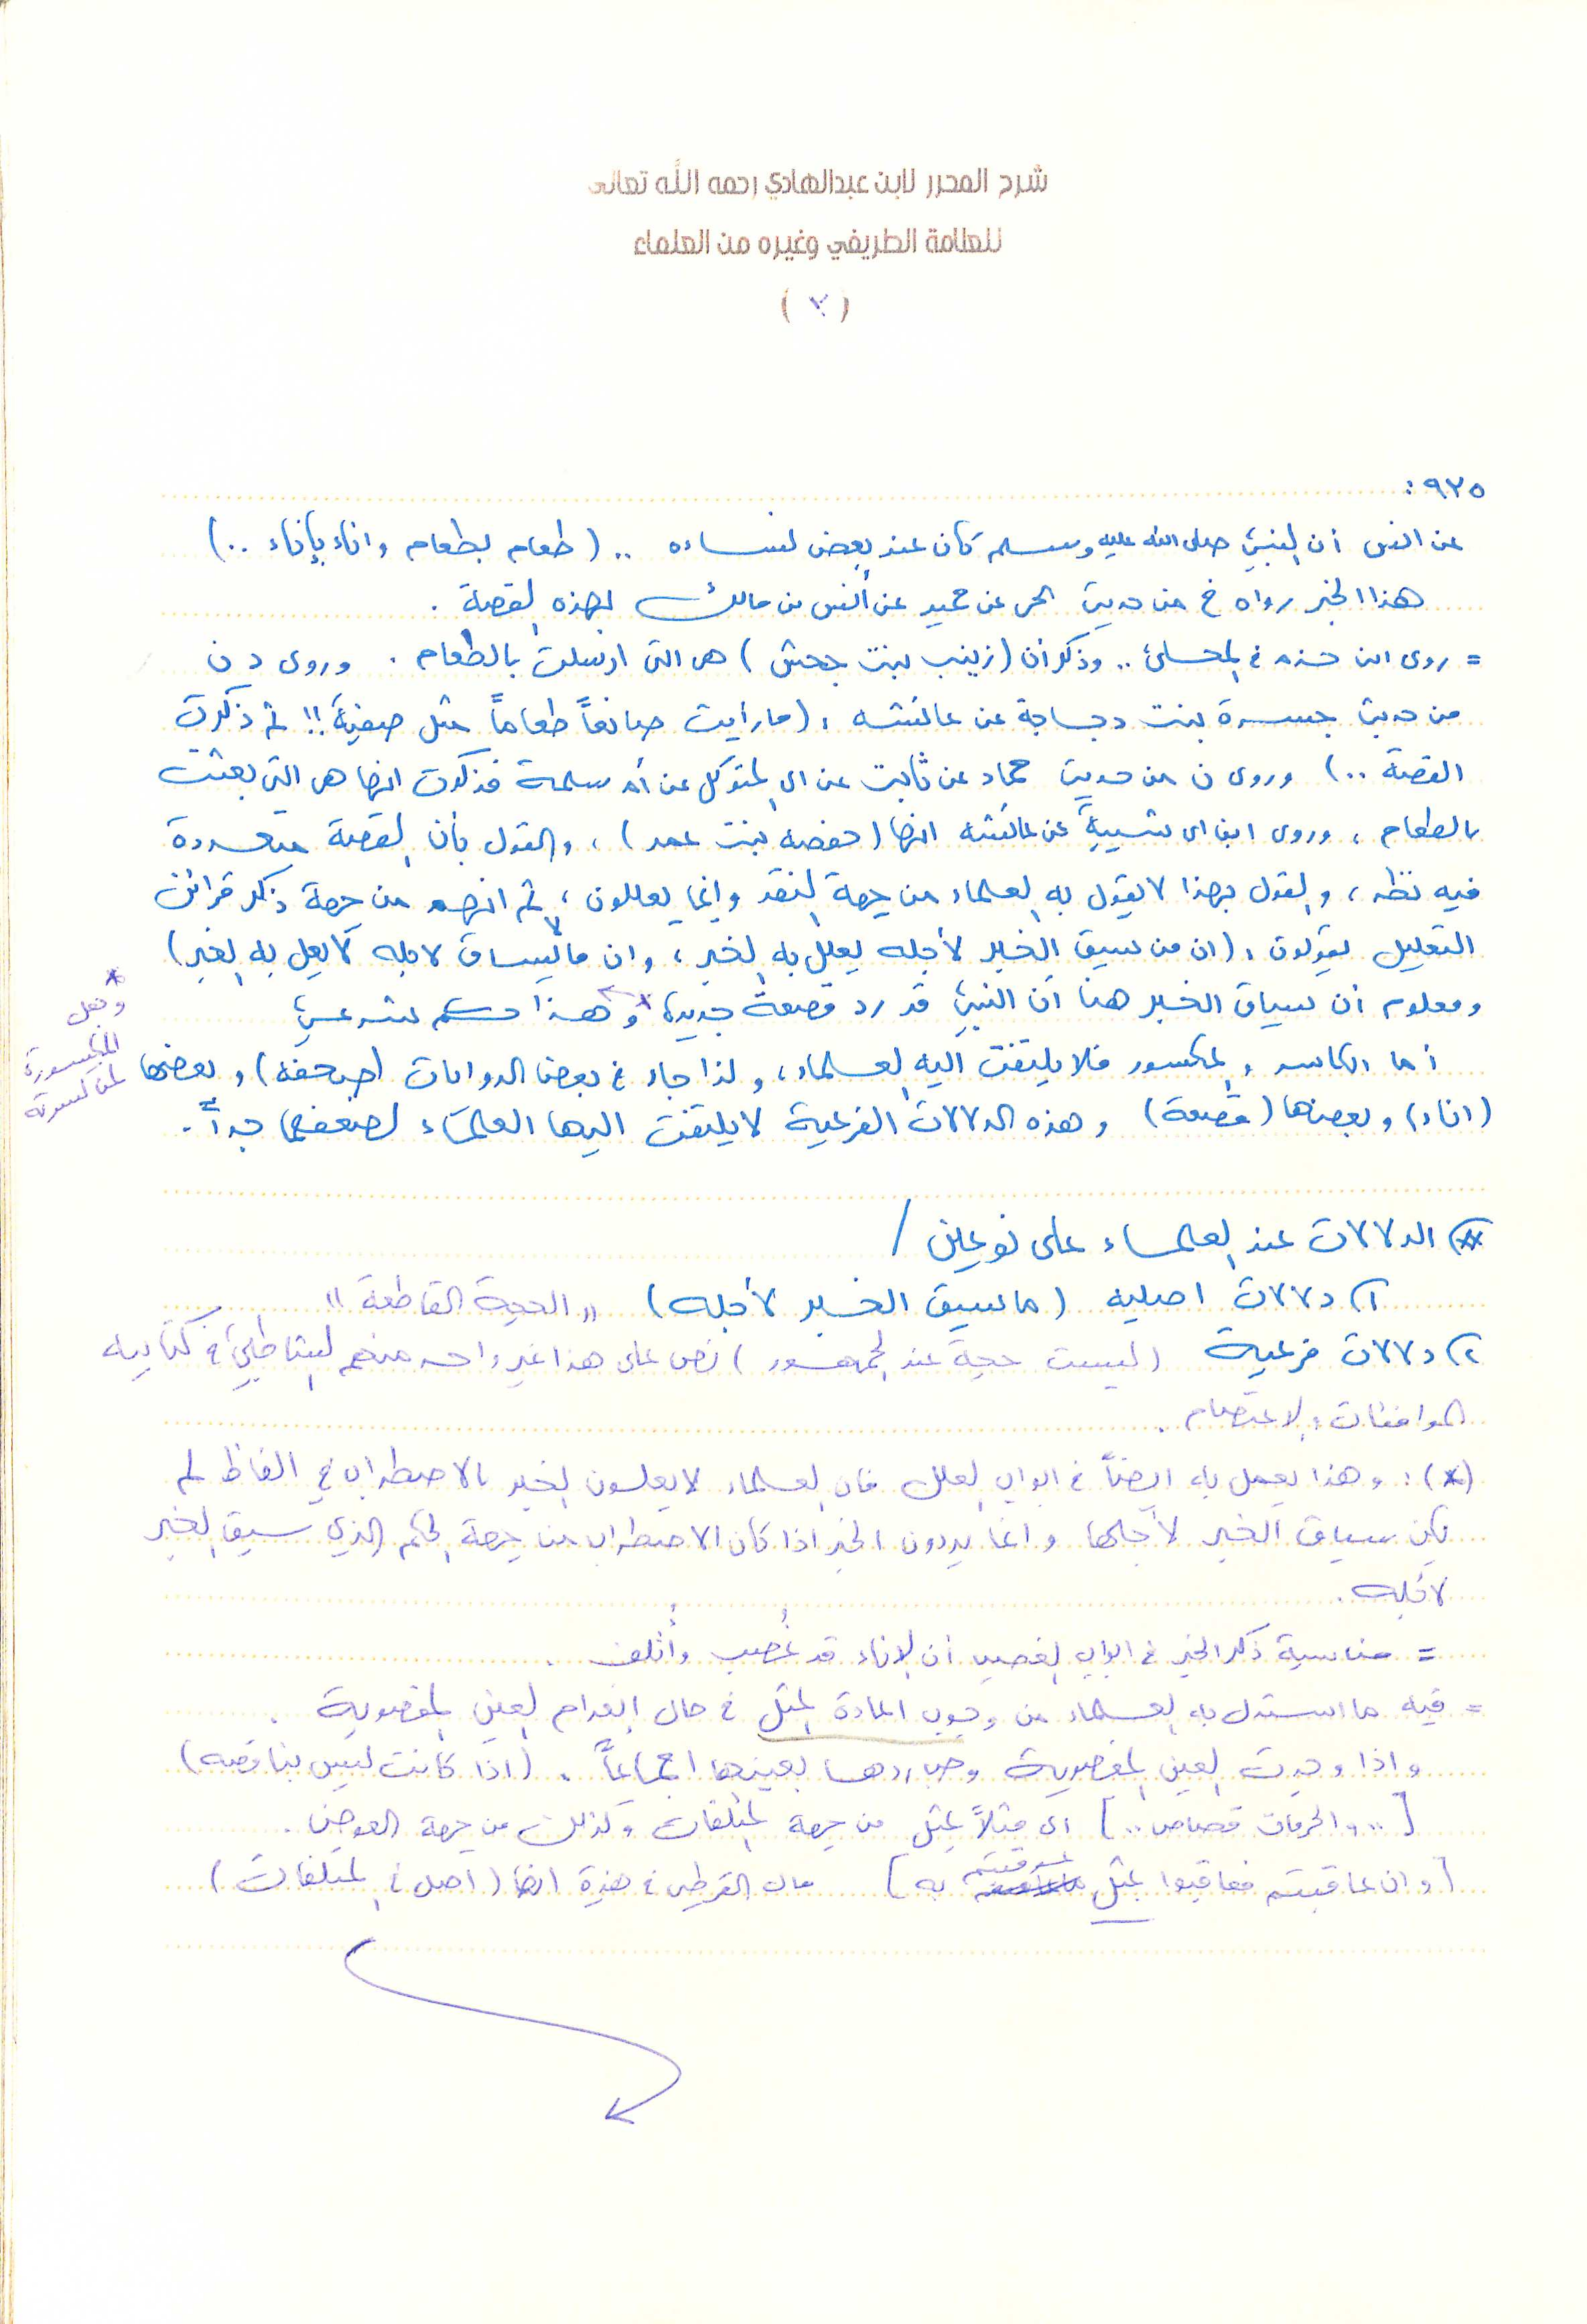 شرح المحرر لابن عبدالهادي رحمه الله تعالى
للعلامة الطريفي وغيره من العلماء
( ٣ )
٩٢٥ :
عن انس أن النبي صلى الله عليه وسلم كان عند بعض نساءه .. ( طعام بطعام واناء بإناء .. )
هذا الخبر رواه خ من حديث عن حميد عن أنس بن مالك بهذه القصة .
= روى ابن حزم في المحلى .. وذكر أن ( زينب بنت جحش ) هى التى ارسلت بالطعام . وروى د ن
من حديث جسرة بنت دجاجة عن عائشه : ( ما رأيت صانعاً طعاماً مثل صفية !! ثم ذكرت
القصة .. ) وروى ن من حديث حماد عن ثابت عن ابى المتوكل عن أم سلمة فذكرت انها هى التى بعثت
بالطعام ، وروى ابن ابى شيبة عن عائشه انها ( حفصه بنت عمر ) ، والقول بأن القصة متعددة
فيه نظر ، والقول بهذا لا يقول به العلماء من جهة النقد وإنما يعللون ، ثم انهم من جهة ذكر قرائن
التعليل يقولون : ( ان من سيق الخبر لأجله يعلل به الخبر ، وان ما لايساق لاجله لا يعل به الخبر )
ومعلوم أن سياق الخبر هنا أن النبي قد رد قصعة جديدة * وهذا حكم شرعي
* وجعل
المكسورة
لمن كسرته
أما الكاسر والمكسور فلا يلتفت اليه العلماء ، ولذا جاء في بعض الروايات ( صحفة ) وبعضها
( اناء ) وبعضها ( قصعة ) وهذه الدلالات الفرعية لا يلتفت اليها العلماء لضعفها جداً .
* ) الدلالات عند العلماء على نوعين /
١ ) دلالات اصليه ( ما سيق الخبر لأجله ) " الحجة القاطعة "
٢ ) دلالات فرعية ( ليست حجة عند الجمهور ) نص على هذا غير واحد منهم الشاطبي في كتابيه
الموافقات والاعتصام .
( * ) : وهذا يعمل به ايضاً في ابواب العلل فان العلماء لا يعلون الخبر بالاضطراب في الفاظ لم
يكن سياق الخبر لأجلها وانما يردون الخبر اذا كان الاضطراب من جهة الحكم الذي سيق الخبر
لاجله .
= مناسبة ذكر الخبر في ابواب الغصب أن الاناء قد غُصب وأُتلف .
= فيه ما استدل به العلماء من وجوب اعادة المثل في حال انعدام العين المغصوبة .
واذا وجدت العين المغصوبة وجب ردها بعينها اجماعاً . ( اذا كانت ليس بناقصه )
[ .. والحرمات قصاص .. ] اى مثلاً بمثل من جهة المتلفات وكذلك من جهة العوض .
[ وان عاقبتم فعاقبوا بمثل ما عوقبتم به ] قال القرطبى في هذة انها ( اصل في المتلفات )